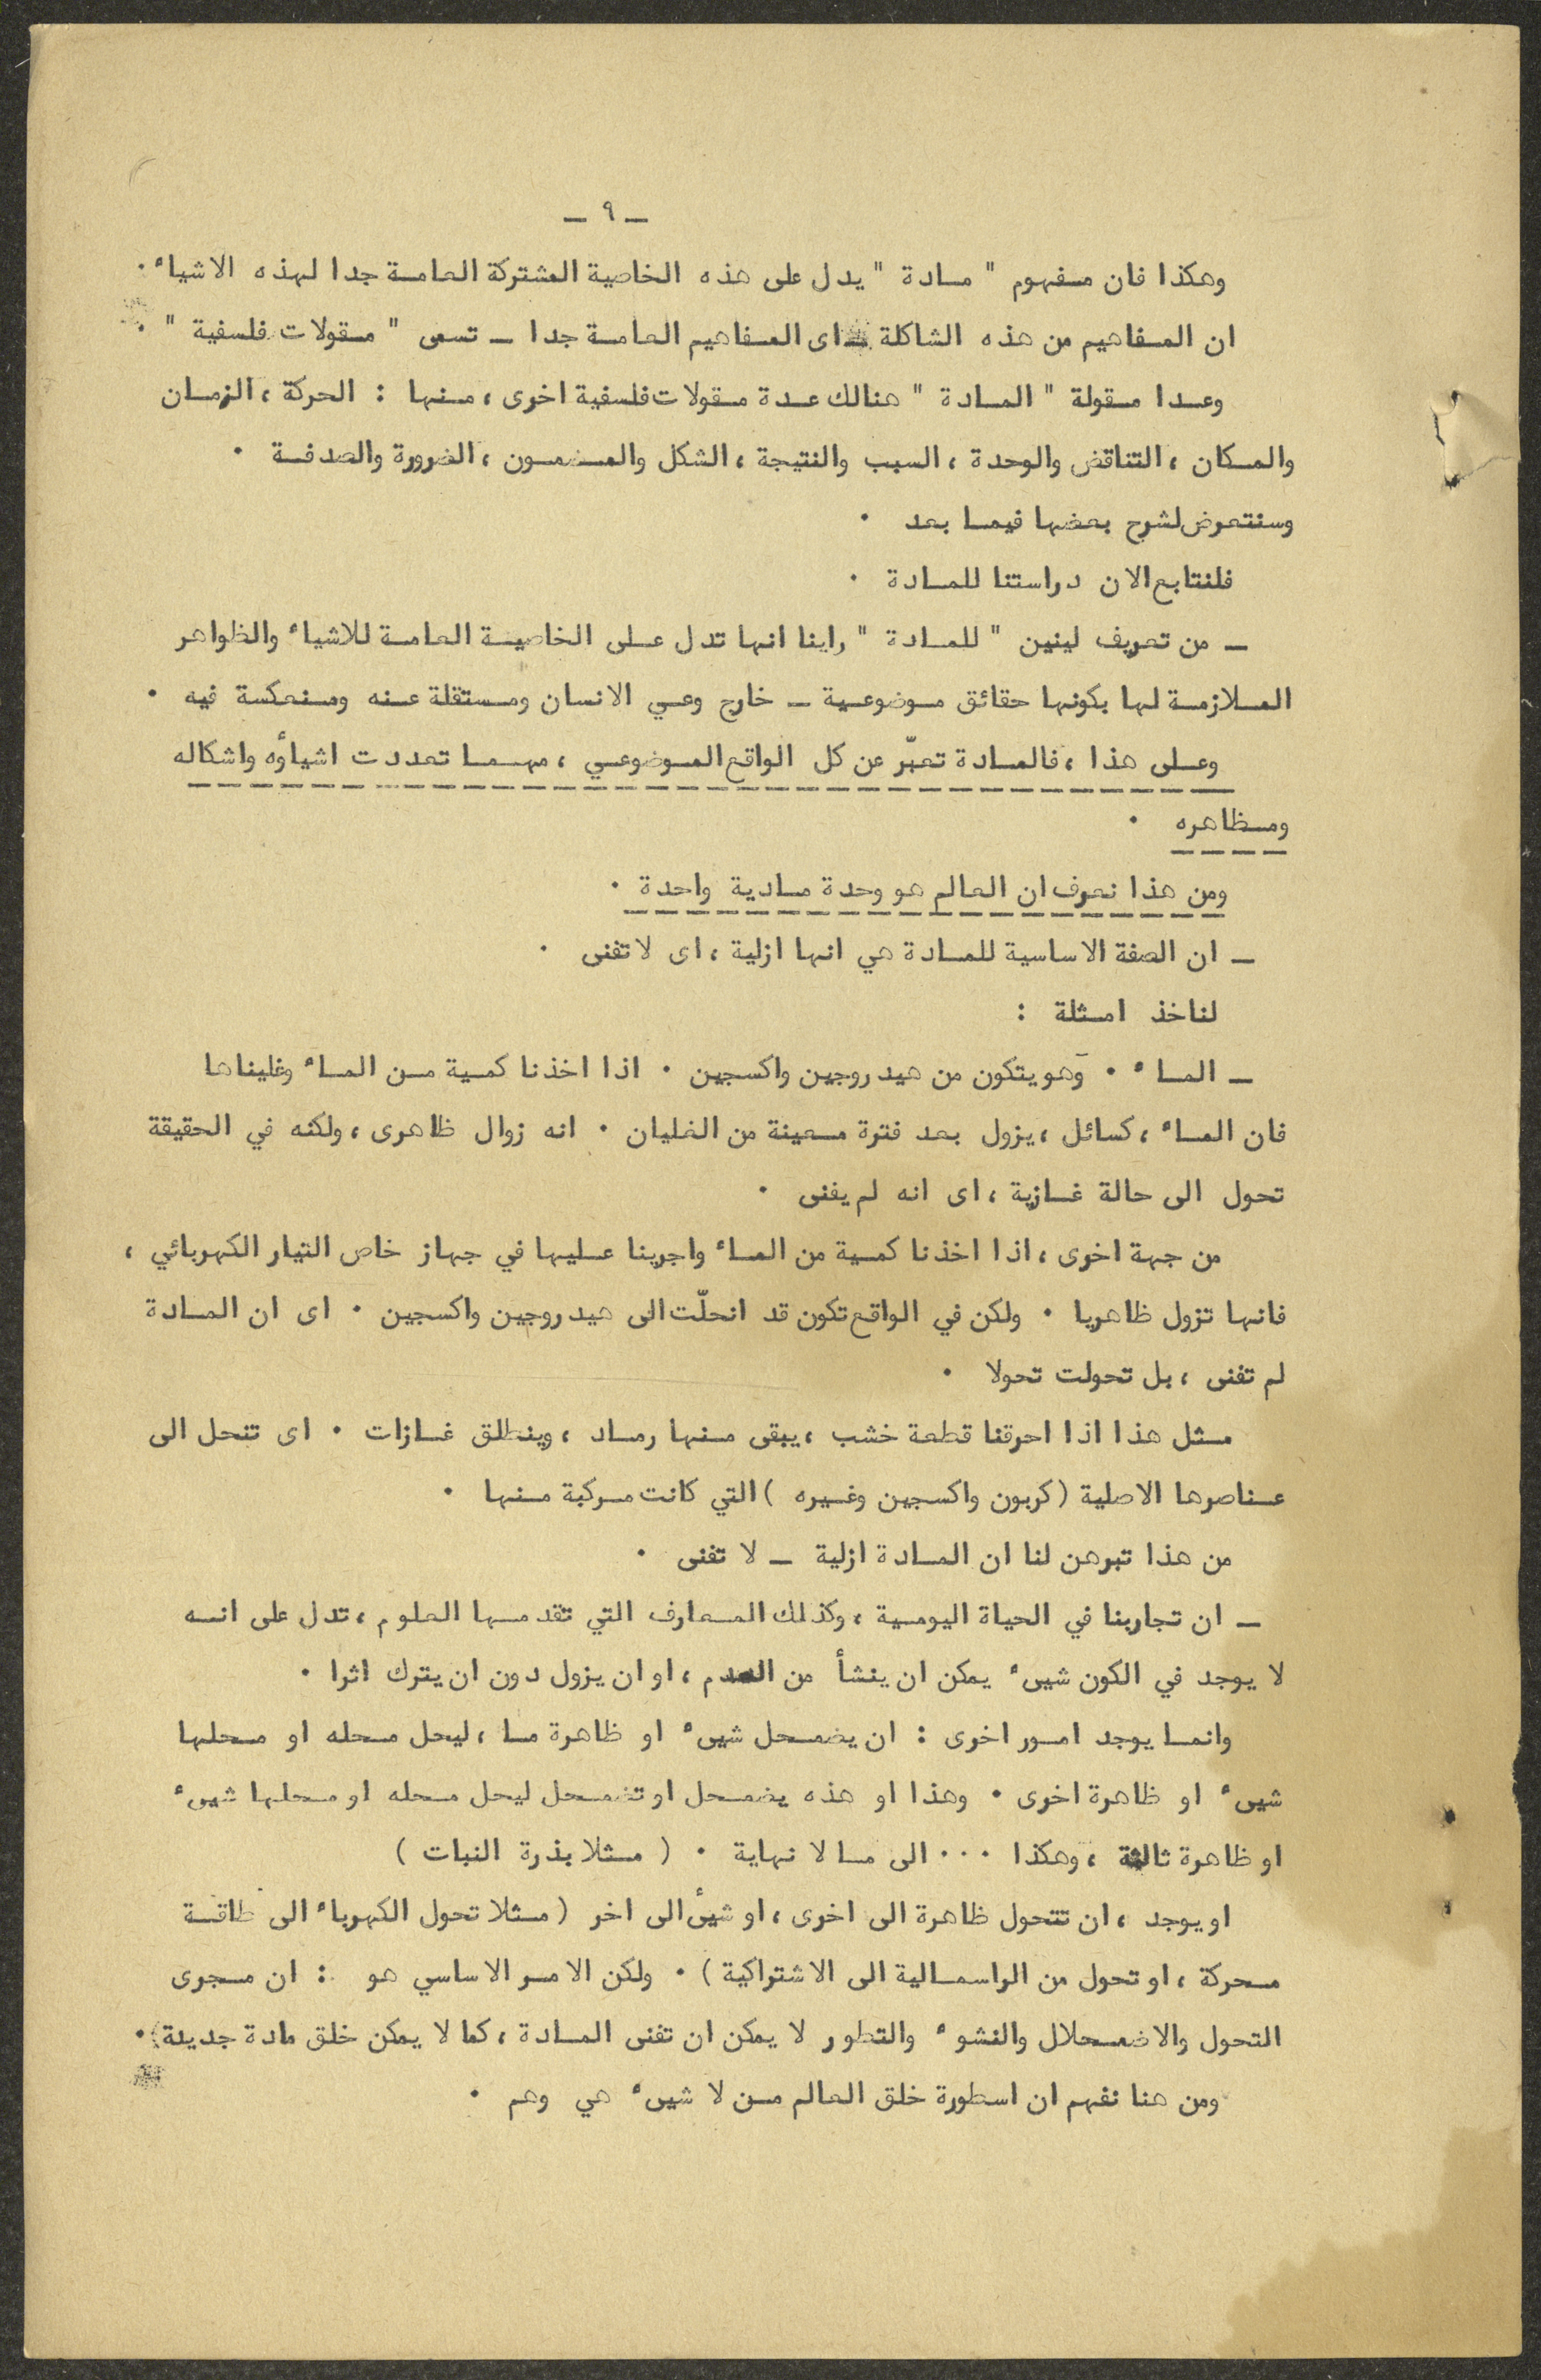 ـ ٩ ـ
وهكذا فان مفهوم " مادة " يدل على هذه الخاصية المشتركة العامة جدا لهذه الاشياء ٠
ان المفاهيم من هذه الشاكلة ـ اى المفاهيم العامة جدا ـ تسمى " مقولات فلسفية " ٠
وعدا مقولة " المادة " هنالك عدة مقولات فلسفية اخرى ، منها : الحركة ، الزمان
والمكان ، التناقض والوحدة ، السبب والنتيجة ، الشكل والمضمون ، الضرورة والصدفة ٠
وسنتعرض لشرح بعضها فيما بعد ٠
فلنتابع الان دراستنا للمادة ٠
ـ من تعريف لينين " للمادة " راينا انها تدل على الخاصية العامة للاشياء والظواهر
الملازمة لها بكونها حقائق موضوعية ـ خارج وعي الانسان ومستقلة عنه ومنعكسة فيه ٠
وعلى هذا ، فالمادة تعبّر عن كل الواقع الموضوعي ، مهما تعددت اشياؤه واشكاله
ومظاهره ٠
ومن هذا نعرف ان العالم هو وحدة مادية واحدة ٠
ـ ان الصفة الاساسية للمادة هي انها ازلية ، اى لا تفنى ٠
لناخذ امثلة :
ـ الماء ٠ وهو يتكون من هيدروجين واكسجين ٠ اذا اخذنا كمية من الماء وغليناها
فان الماء ، كسائل ، يزول بعد فترة معينة من الغليان ٠ انه زوال ظاهرى ، ولكنه في الحقيقة
تحول الى حالة غازية ، اى انه لم يفنى ٠
من جهة اخرى ، اذا اخذنا كمية من الماء واجرينا عليها في جهاز خاص التيار الكهربائي ،
فانها تزول ظاهريا ٠ ولكن في الواقع تكون قد انحلّت الى هيدروجين واكسجين ٠ اى ان المادة
لم تفنى ، بل تحولت تحولا ٠
مثل هذا اذا احرقنا قطعة خشب ، يبقى منها رماد ، وينطلق غازات ٠ اى تنحل الى
عناصرها الاصلية ( كربون واكسجين وغيره ) التي كانت مركبة منها ٠
من هذا تبرهن لنا ان المادة ازلية ـ لا تفنى ٠
ـ ان تجاربنا في الحياة اليومية ، وكذلك المعارف التي تقدمها العلوم ، تدل على انه
لا يوجد في الكون شيء يمكن ان ينشأ من العدم ، او ان يزول دون ان يترك اثرا ٠
وانما يوجد امور اخرى : ان يضمحل شيء او ظاهرة ما ، ليحل محله او محلها
شيء او ظاهرة اخرى ٠ وهذا او هذه يضمحل او تضمحل ليحل محله او محلها شيء
او ظاهرة ثالثة ، وهكذا ٠٠٠ الى ما لا نهاية ٠ ( مثلا بذرة النبات )
او يوجد ، ان تتحول ظاهرة الى اخرى ، او شيئ الى اخر ( مثلا تحول الكهرباء الى طاقة
محركة ، او تحول من الراسمالية الى الاشتراكية ) ٠ ولكن الامر الاساسي هو : ان مجرى
التحول والاضمحلال والنشوء والتطور لا يمكن ان تفنى المادة ، كما لا يمكن خلق مادة جديدة ٠
ومن هنا نفهم ان اسطورة خلق العالم من لا شيء هي وهم ٠